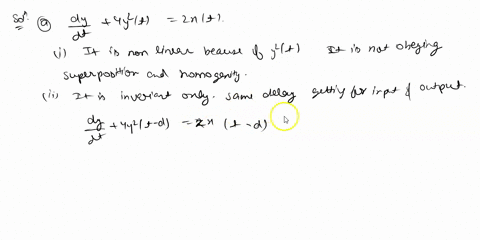 Solⁿ. (a) dy/dt + 4y²(t) = 2x(t).
(i) It is non linear beause if y²(t) It is not obeying
superposition and homogenity.
(ii) It is invariant only. same delay getting for input & output.
dy/dt + 4y²(t-d) = 2x (t-d)